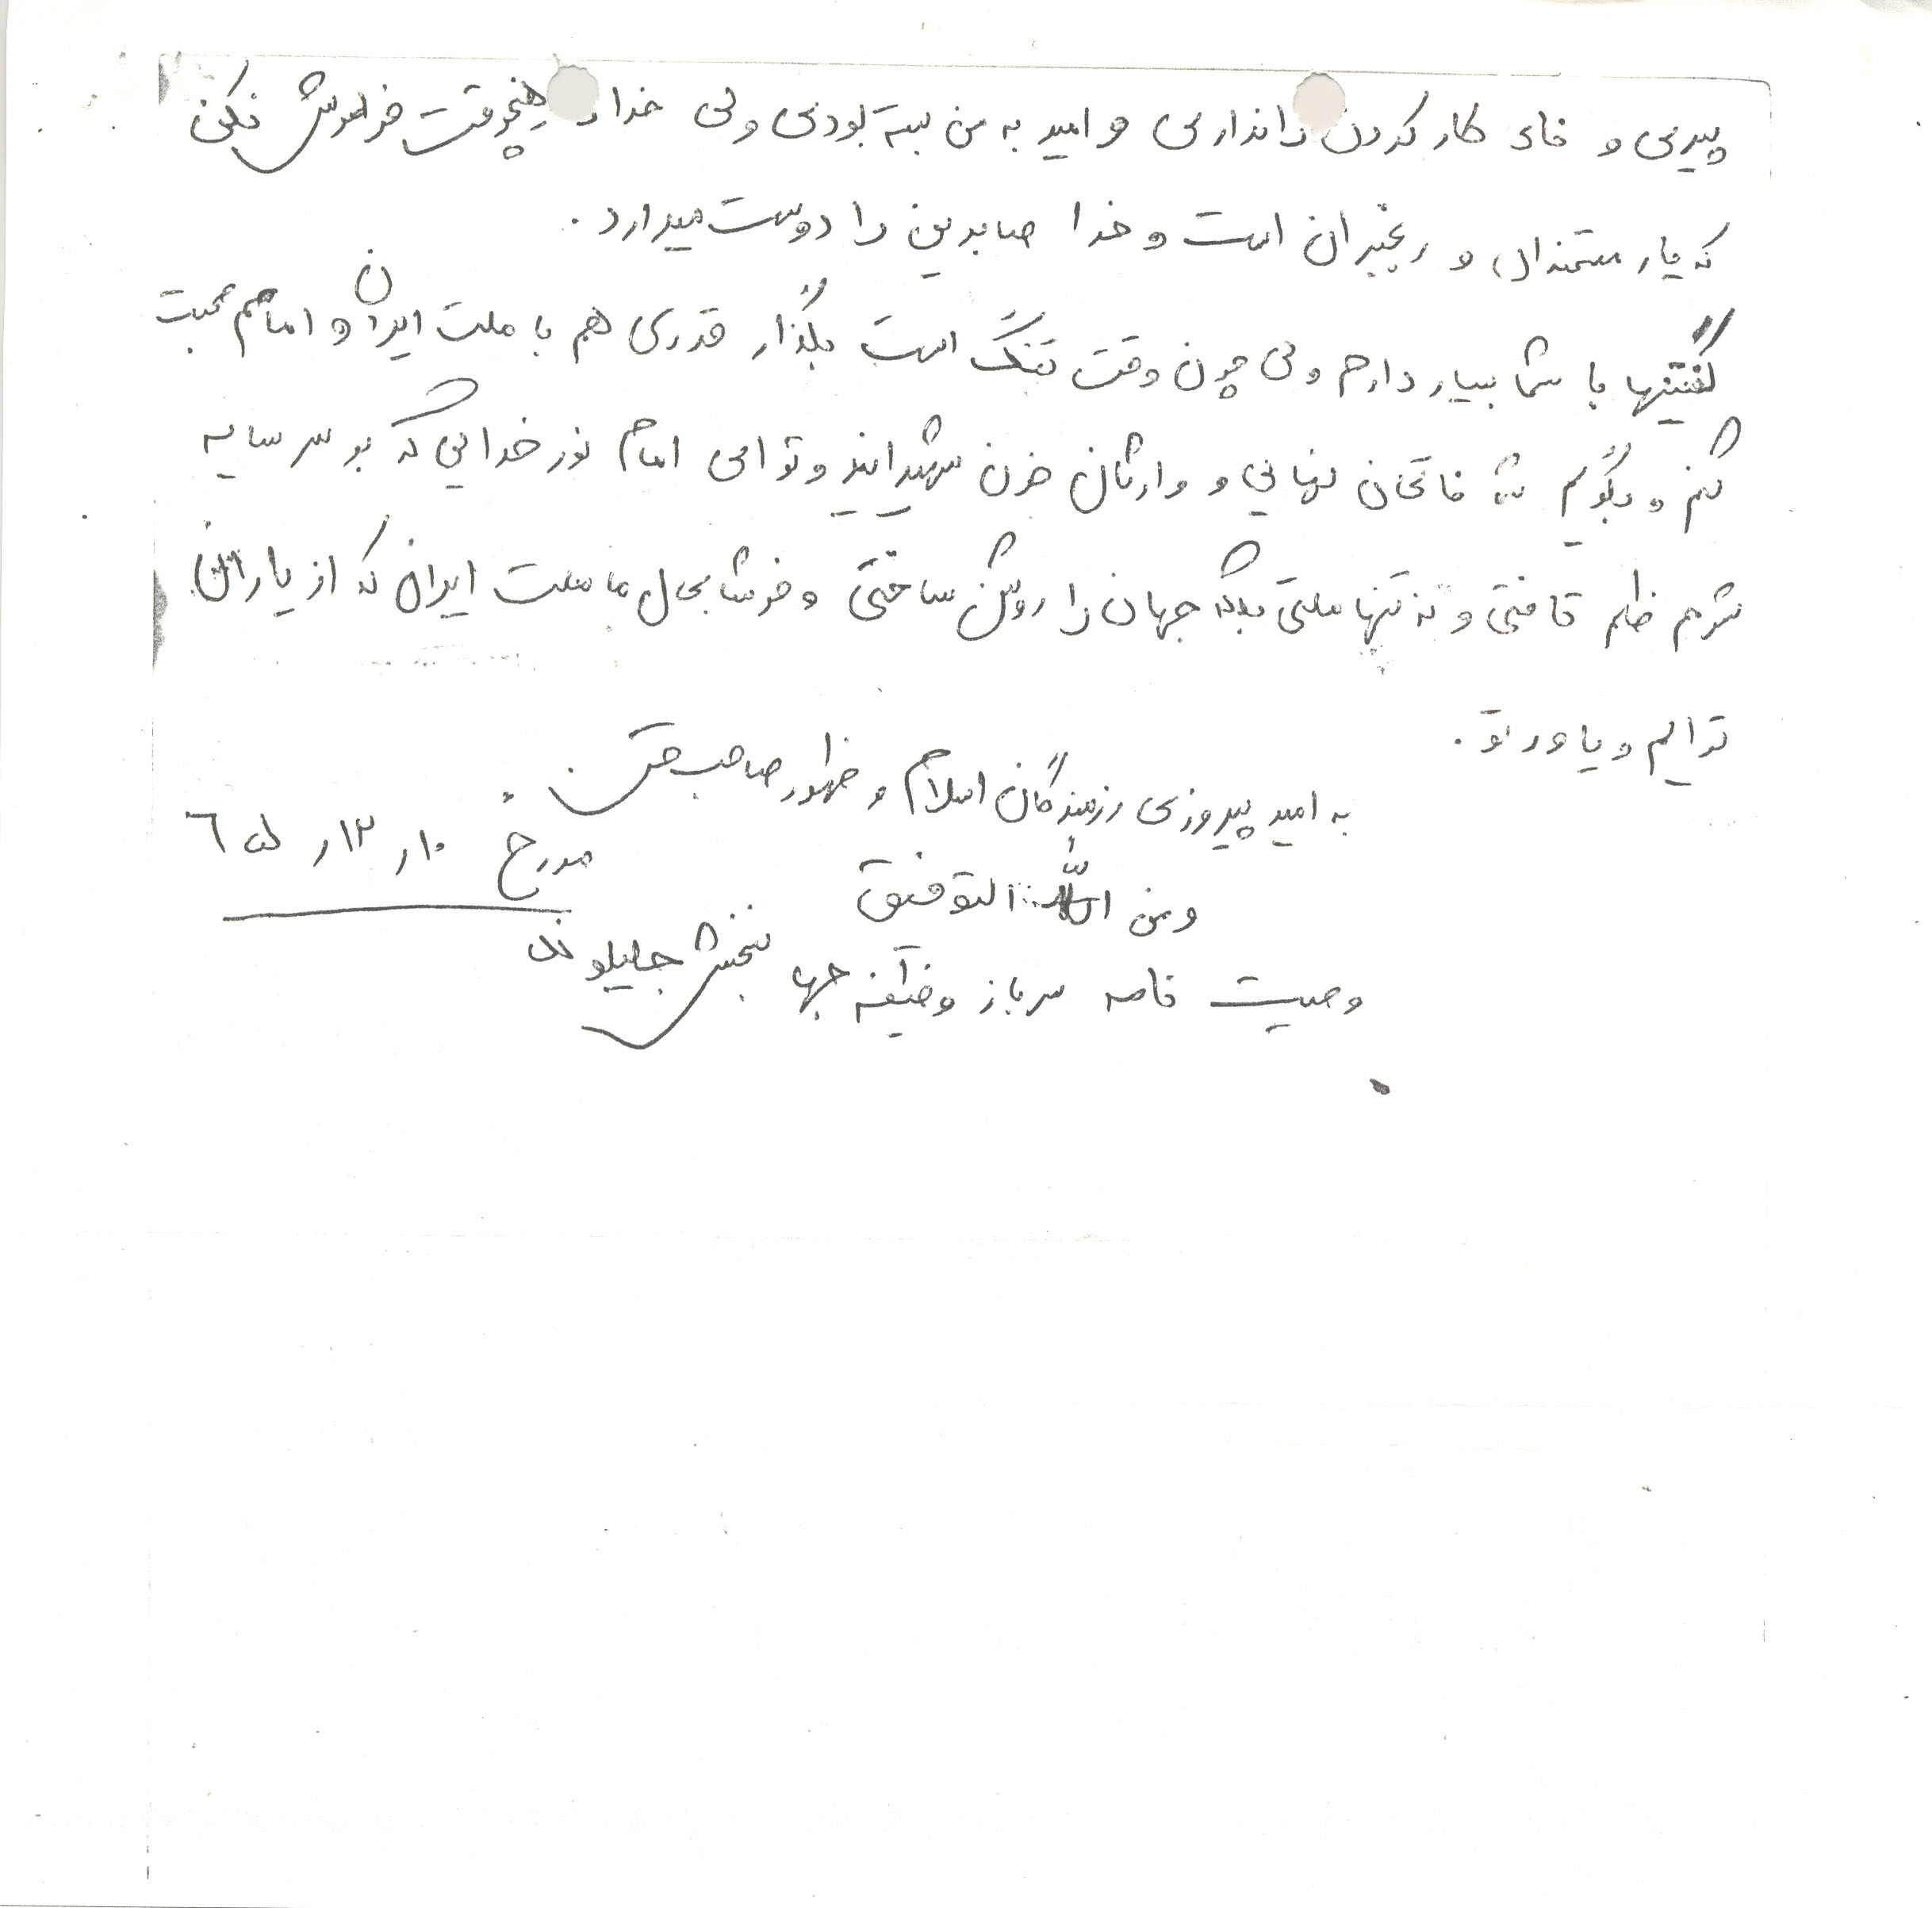 پیری و نای کار کردن را نداری و امید به من بسته بودی ولی خدا را هیچوقت فراموش نکن
که یار مستمندان و رنجبران است و خدا صابرین را دوست میدارد .
گفتنیها با شما بسیار دارم ولی چون وقت تنگ است بگذار قدری هم با ملت ایران و امامم صحبت
کنم و بگویم شما فاتحان نهایی و وارثان خون شهیدانید و تو ای امام نور خدایی که بر سر سایه
شرم ظلم تافتی و نه تنها ملتی بلکه جهان را روشن ساختی و خوشا بحال ما ملت ایران که از یاران
توایم و یاور تو .
به امید پیروزی رزمندگان اسلام و ظهور صاحب حق .
ومن الله التوفیق
مورخ ۱۰ر ۱۲ر ۶۵
وصیت نامه سرباز وظیفه جهانبخش جلیلوند